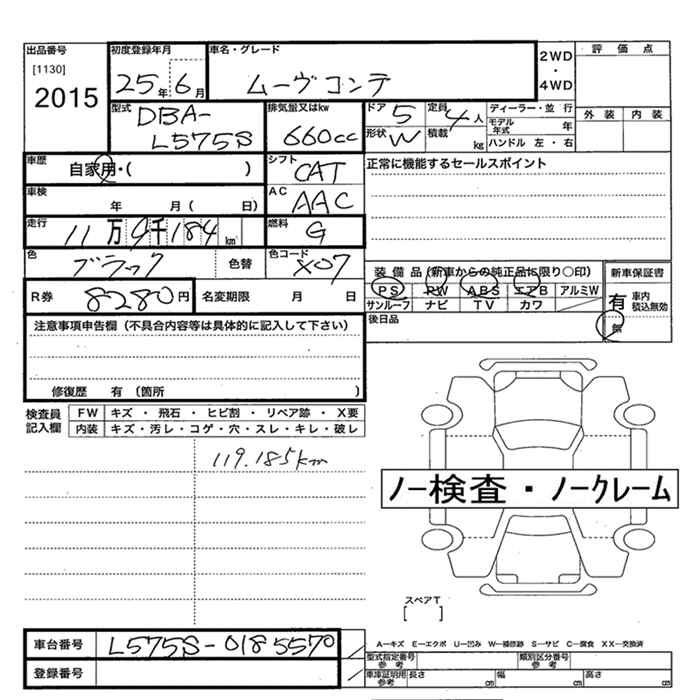 出品番号
[1130]
2015
初度登録年月
25年6月
車名・グレード
ムーヴコンテ
2WD
・
4WD
評価点
外装 内装
型式
DBA-
L575S
排気量又はkw
660cc
ドア 5
定員 4人
形状 W
積載 kg
ディーラー・並行
モデル年式 年
ハンドル 左・右
車歴
自家用・( )
シフト
CAT
正常に機能するセールスポイント
車検
年 月( 日)
AC
AAC
走行
11万9千184km
燃料
G
色
ブラック
色替
色コード
X07
装備品(新車からの純正品に限り○印)
PS PW ABS エアB アルミW
サンルーフ ナビ TV カワ
後日品
新車保証書
有 車内積込無効
無
R券
8280円
名変期限 月 日
注意事項申告欄(不具合内容等は具体的に記入して下さい)
修復歴 有〔箇所 〕
検査員記入欄
FW キズ・飛石・ヒビ割・リペア跡・X要
内装 キズ・汚レ・コゲ・穴・スレ・キレ・破レ
119.185km
ノー検査・ノークレーム
スペアT
[ ]
車台番号
L575S-0185570
登録番号
A…キズ E…エクボ U…凹み W…補修跡 S…サビ C…腐食 XX…交換済
型式指定番号参考
類別区分番号参考
車庫証明用参考
長さ cm
幅 cm
高さ cm